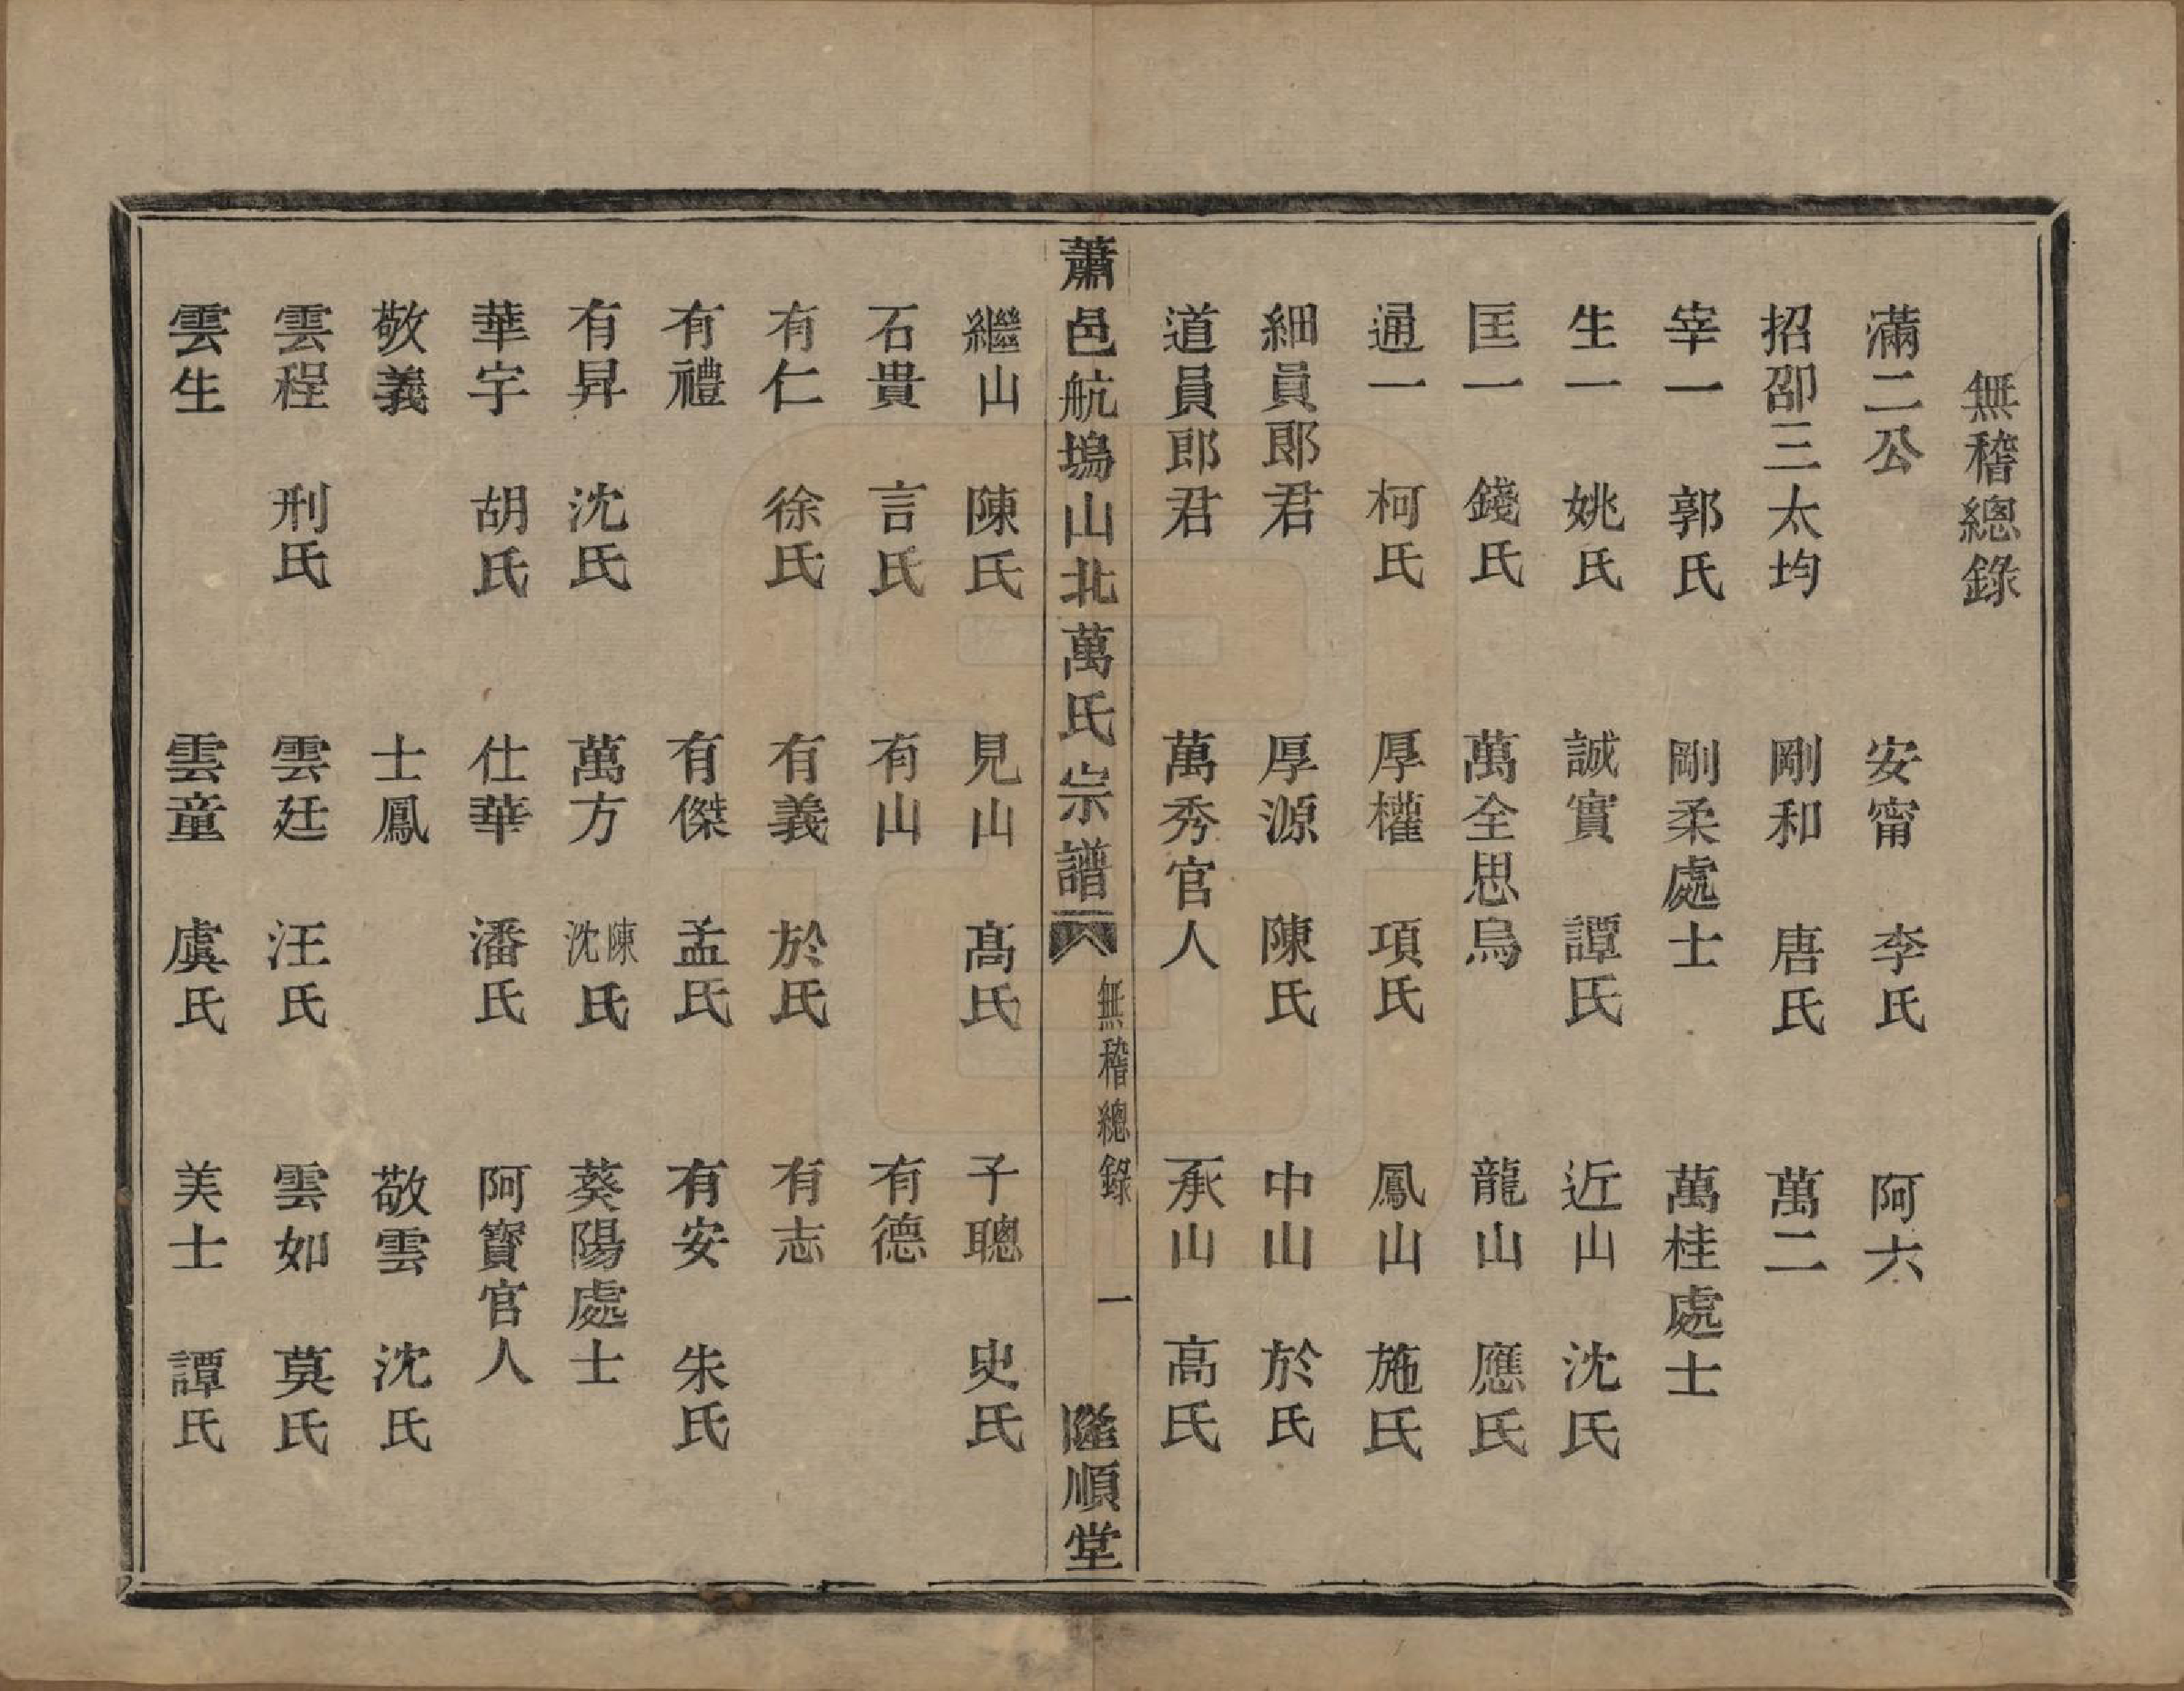 無稽總錄
滿二公　安甯　李氏　阿六
招邵三太均　剛和　唐氏　萬二
宰一　郭氏　剛柔處士　萬桂處士
生一　姚氏　誠實　譚氏　近山　沈氏
匡一　錢氏　萬全思烏　龍山　應氏
通一　柯氏　厚權　項氏　鳳山　施氏
細員郎君　厚源　陳氏　中山　於氏
道員郎君　萬秀官人　承山　高氏
蕭邑航塢山北萬氏宗譜　無稽總錄　一　隆順堂
繼山　陳氏　見山　髙氏　子聰　史氏
石貴　言氏　有山　有德
有仁　徐氏　有義　於氏　有志
有禮　有傑　孟氏　有安　朱氏
有昇　沈氏　萬方　陳沈氏　葵陽處士
華宇　胡氏　仕華　潘氏　阿寳官人
敬義　士鳳　敬雲　沈氏
雲程　刑氏　雲廷　汪氏　雲如　莫氏
雲生　雲童　虞氏　美士　譚氏